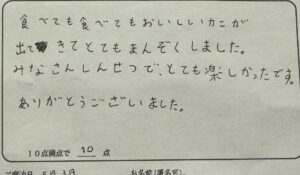 食べても食べてもおいしいカニが
出てきてとてもまんぞくしました。
みなさんしんせつで、とても楽しかったです。
ありがとうございました。
10点満点で 10 点
ご宿泊日 5月3日 お名前(匿名可)